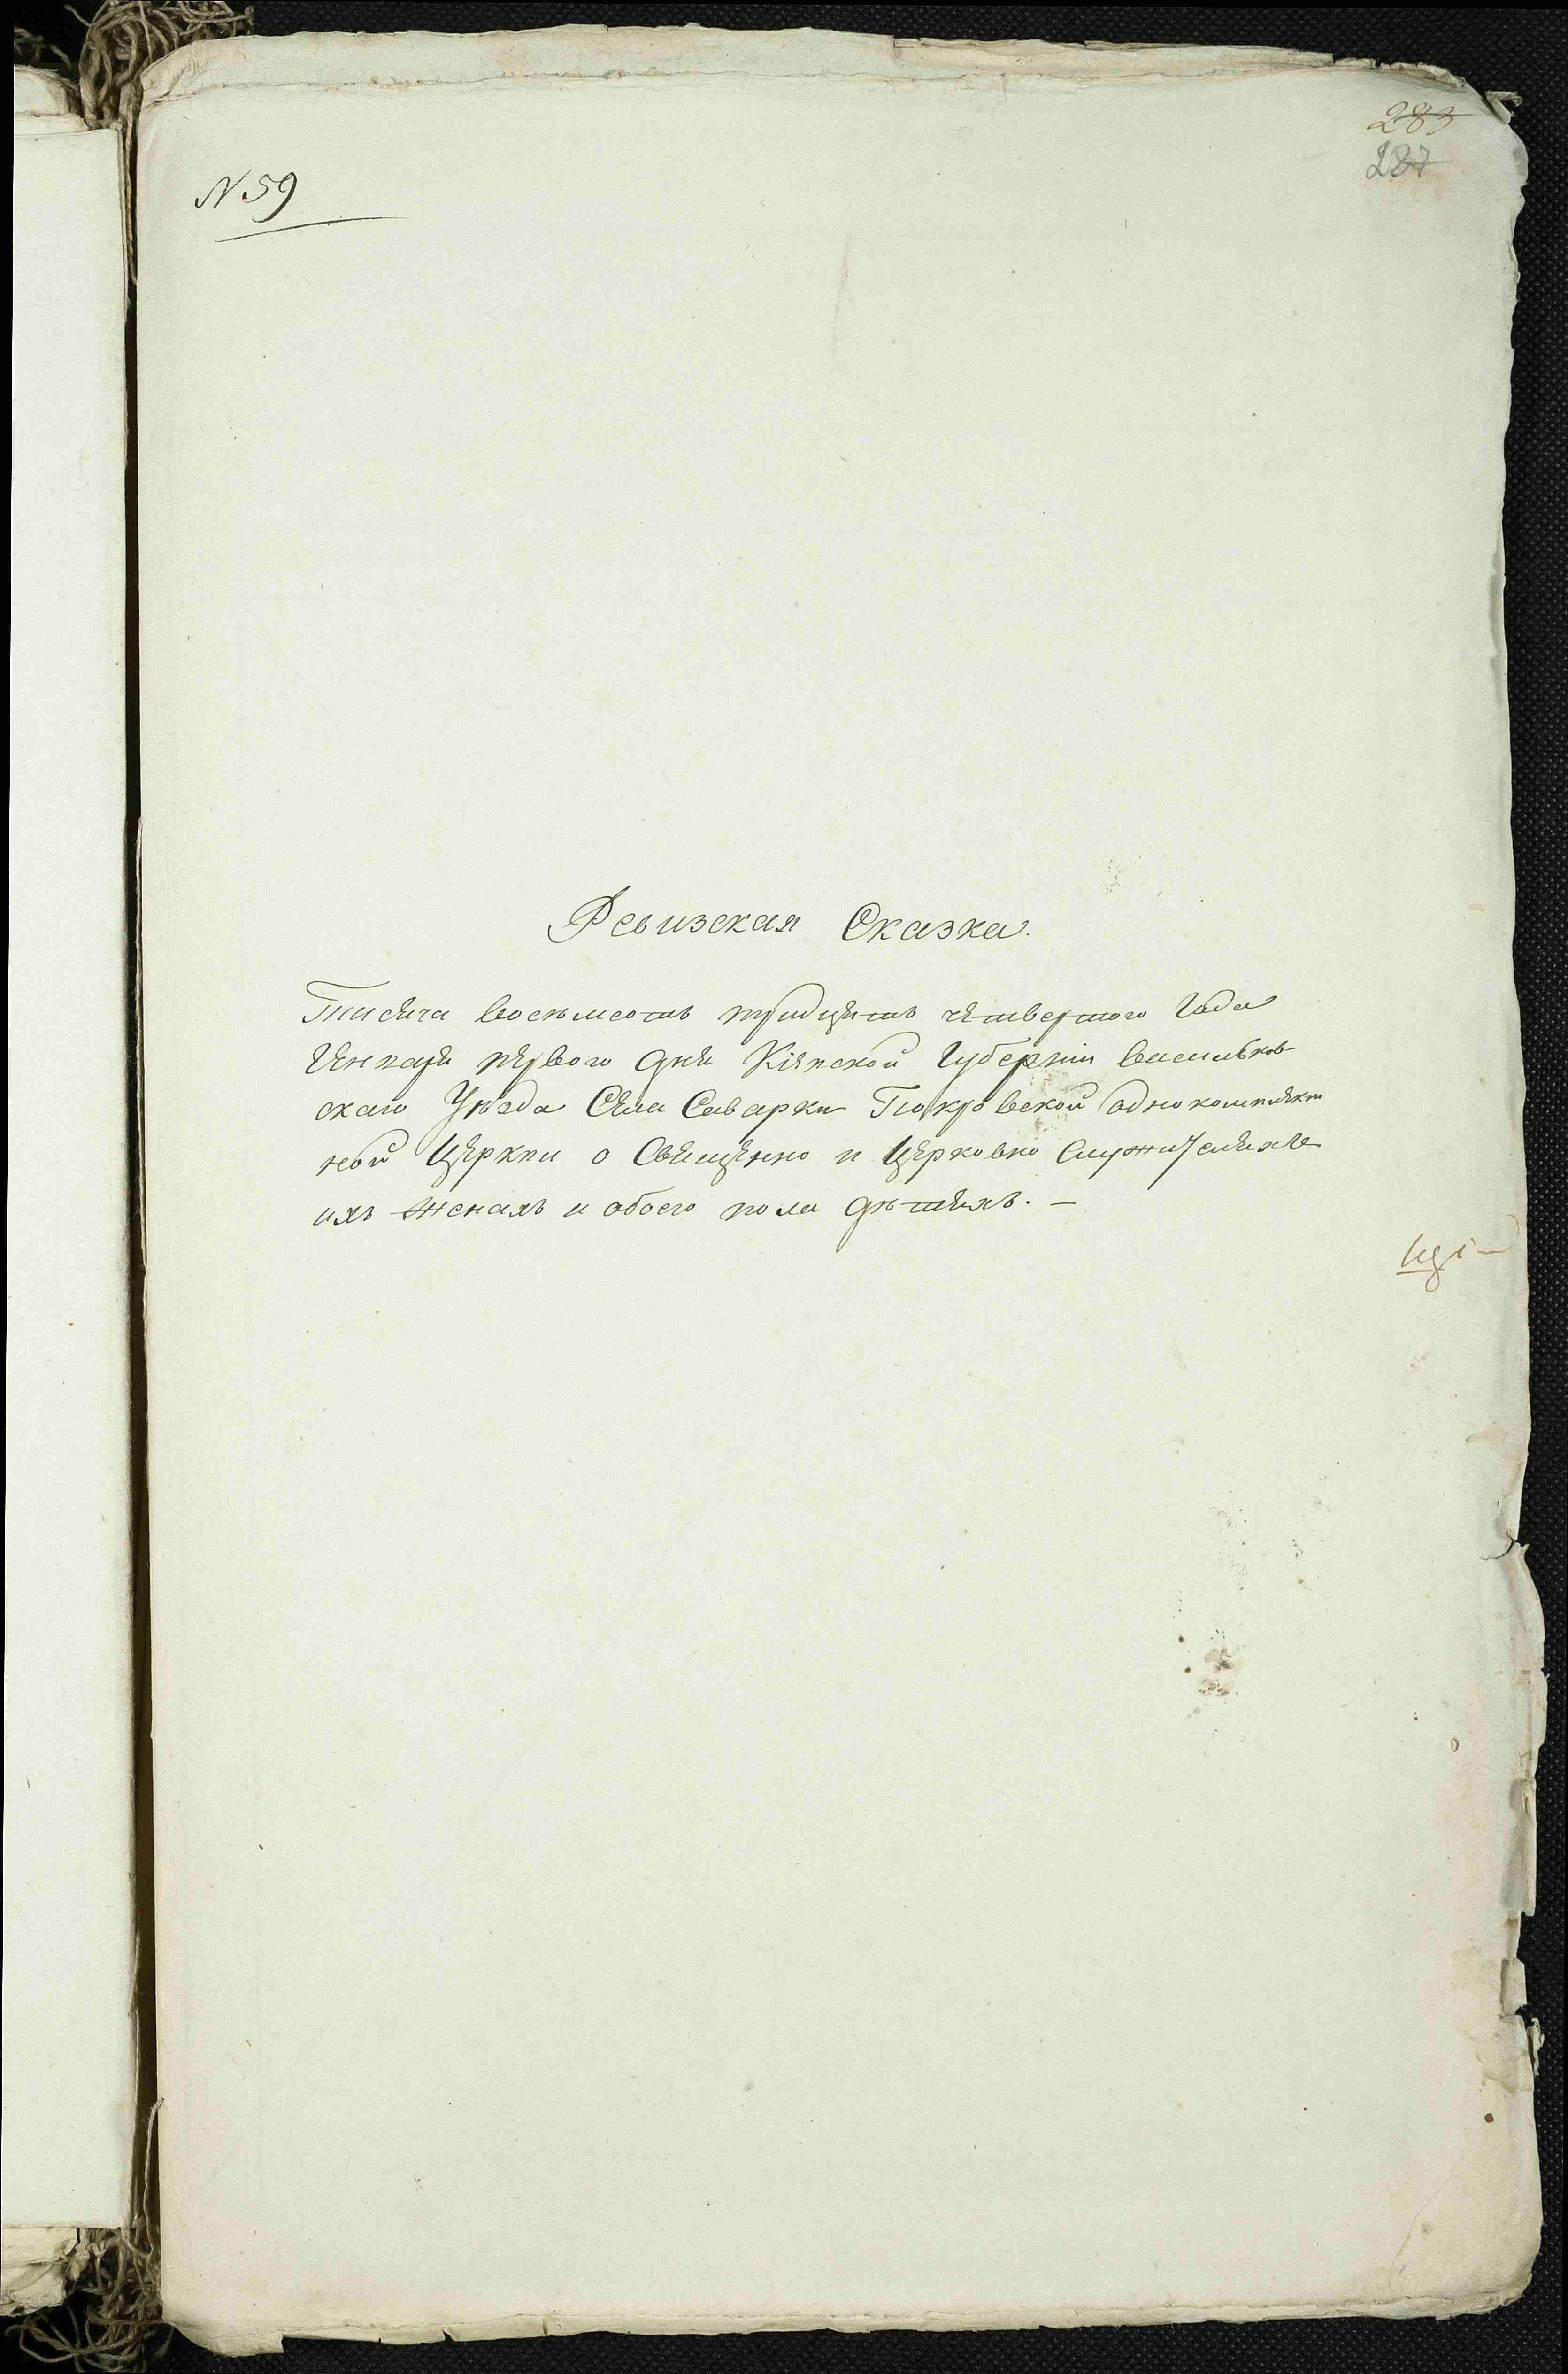 283
287
N 59
Ревизская Сказка.
Тысяча восемьсотъ тридцать четвертого Года
Генваря первого дня Кіевской Губерніи Васильков-
скаго Уѣзда Села Саварки Покровской однокомплект
ной Церкви о Священно и Церковно Служителяхъ
ихъ женахъ и обоего пола дѣтяхъ. —